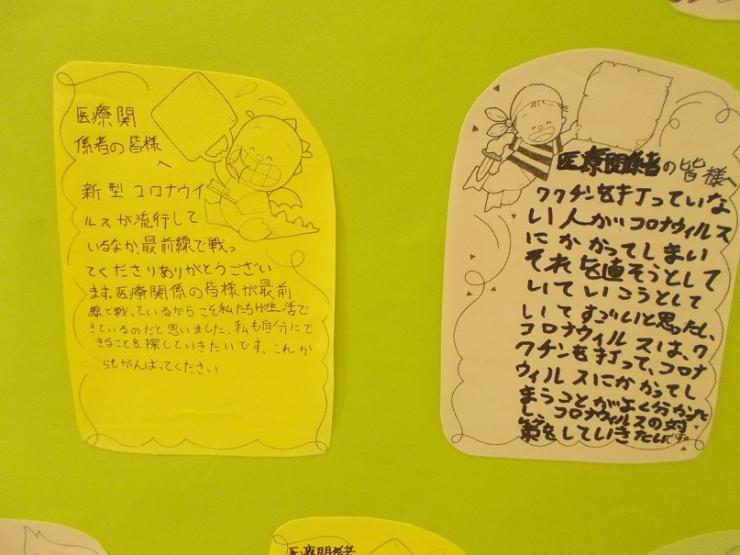 医療関
係者の皆様
へ
新型コロナウイ
ルスが流行して
いるなか、最前線で戦っ
てくださりありがとうござい
ます。医療関係の皆様が最前
線で戦っているからこそ私たちが生活で
きているのだと思いました。私も自分にで
きることを探していきたいです。これか
らもがんばってください
医療関係者の皆様へ
ワクチンを打っていな
い人がコロナウィルス
にかかってしまい
それを直そうとして
いていこうとして
いてすごいと思ったし、
コロナウィルスは、ワ
クチンを打って、コロナ
ウィルスにかかってし
まうことがよく分かった
し、コロナウィルスの対
策をしていきたいです。
医療関係者